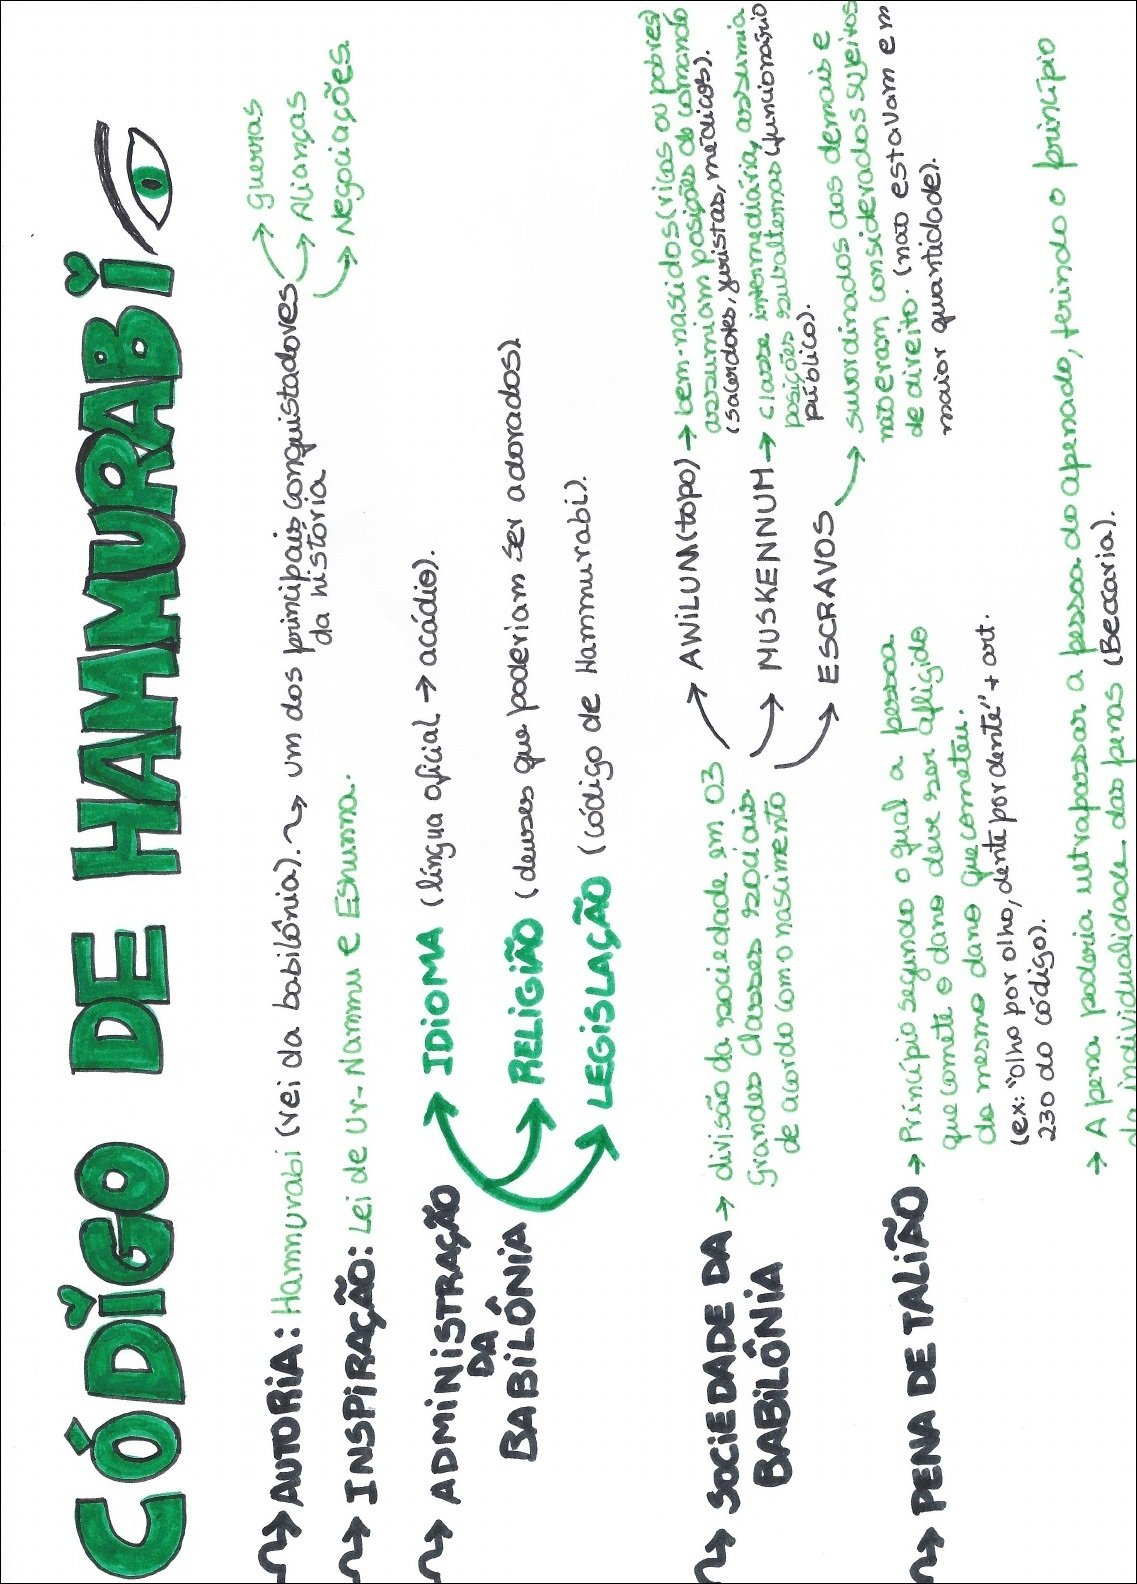 CÓDIGO DE HAMMURABI
AUTORIA: Hammurabi (rei da babilônia). um dos principais conquistadores
da história
→ guerras
→ Alianças
→ Negociações
INSPIRAÇÃO: Lei de Ur-Nammu e Eshunna.
ADMINISTRAÇÃO
DA
BABILÔNIA
IDIOMA (língua oficial → acádio).
RELIGIÃO (deuses que poderiam ser adorados).
LEGISLAÇÃO (código de Hammurabi).
SOCIEDADE DA
BABILÔNIA
→ divisão da sociedade em 03
Grandes classes sociais
de acordo com o nascimento
→ AWILUM (topo) → bem-nascidos (ricos ou pobres)
assumiam posições de comando
(sacerdores, juristas, médicos).
→ MUSKENNUM → classe intermediária, assumia
posições subalternas (funcionário
público).
→ ESCRAVOS → subordinados aos demais e
não eram considerados sujeitos
de direito. (não estavam em
maior quantidade).
PENA DE TALIÃO → Princípio segundo o qual a pessoa
que comete o dano deve ser afligido
do mesmo dano que cometeu.
(ex: "olho por olho, dente por dente" + art.
230 do código).
→ A pena poderia ultrapassar a pessoa do apenado, ferindo o princípio
da individualidade das penas (Beccaria).